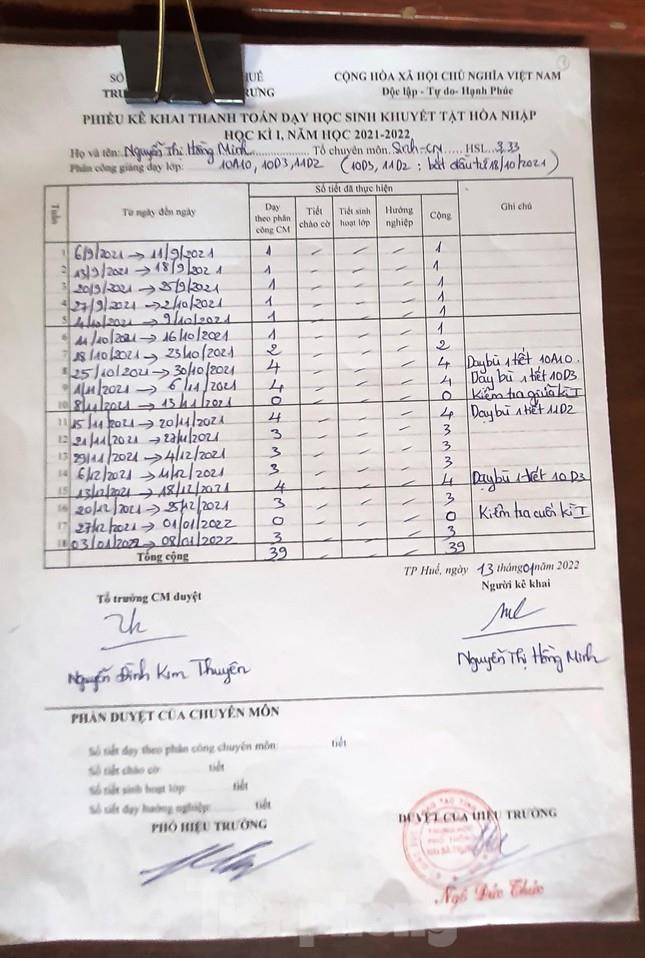 SỞ UẾ CỘNG HÒA XÃ HỘI CHỦ NGHĨA VIỆT NAM
TRƯ RƯNG Độc lập - Tự do- Hạnh Phúc
PHIẾU KÊ KHAI THANH TOÁN DẠY HỌC SINH KHUYẾT TẬT HÒA NHẬP
HỌC KÌ I, NĂM HỌC 2021-2022
Họ và tên: Nguyễn Thị Hồng Minh Tổ chuyên môn: Sinh-CN HSL: 3.33
Phân công giảng dạy lớp: 10A10, 10D3, 11D2 (10D3, 11D2 : bắt đầu từ 18/10/2021)
Tuần Từ ngày đến ngày Số tiết đã thực hiện Ghi chú
Dạy theo phân công CM Tiết chào cờ Tiết sinh hoạt lớp Hướng nghiệp Cộng
1 6/9/2021 → 11/9/2021 1 – – – 1
2 13/9/2021 → 18/9/2021 1 – – – 1
3 20/9/2021 → 25/9/2021 1 – – – 1
4 27/9/2021 → 2/10/2021 1 – – – 1
5 4/10/2021 → 9/10/2021 1 – – – 1
6 11/10/2021 → 16/10/2021 1 – – – 1
7 18/10/2021 → 23/10/2021 2 – – – 2
8 25/10/2021 → 30/10/2021 4 – – – 4 Dạy bù 1 tiết 10A10.
9 1/11/2021 → 6/11/2021 4 – – – 4 Dạy bù 1 tiết 10D3
10 8/11/2021 → 13/11/2021 0 – – – 0 Kiểm tra giữa kì I
11 15/11/2021 → 20/11/2021 4 – – – 4 Dạy bù 1 tiết 11D2
12 21/11/2021 → 27/11/2021 3 – – – 3
13 29/11/2021 → 4/12/2021 3 – – – 3
14 6/12/2021 → 11/12/2021 3 – – – 3
15 13/12/2021 → 18/12/2021 4 – – – 4 Dạy bù 1 tiết 10D3
16 20/12/2021 → 25/12/2021 3 – – – 3
17 27/12/2021 → 01/01/2022 0 – – – 0 Kiểm tra cuối kì I
18 03/01/2022 → 08/01/2022 3 – – – 3
Tổng cộng 39 – – – 39
TP Huế, ngày 13 tháng 01 năm 2022
Tổ trưởng CM duyệt Người kê khai
Nguyễn Đình Kim Thuyên Nguyễn Thị Hồng Minh
PHẦN DUYỆT CỦA CHUYÊN MÔN
Số tiết dạy theo phân công chuyên môn: tiết
Số tiết chào cờ tiết
Số tiết sinh hoạt lớp: tiết
Số tiết dạy hướng nghiệp: tiết
PHÓ HIỆU TRƯỞNG DUYỆT CỦA HIỆU TRƯỞNG
Ngô Đức Thức